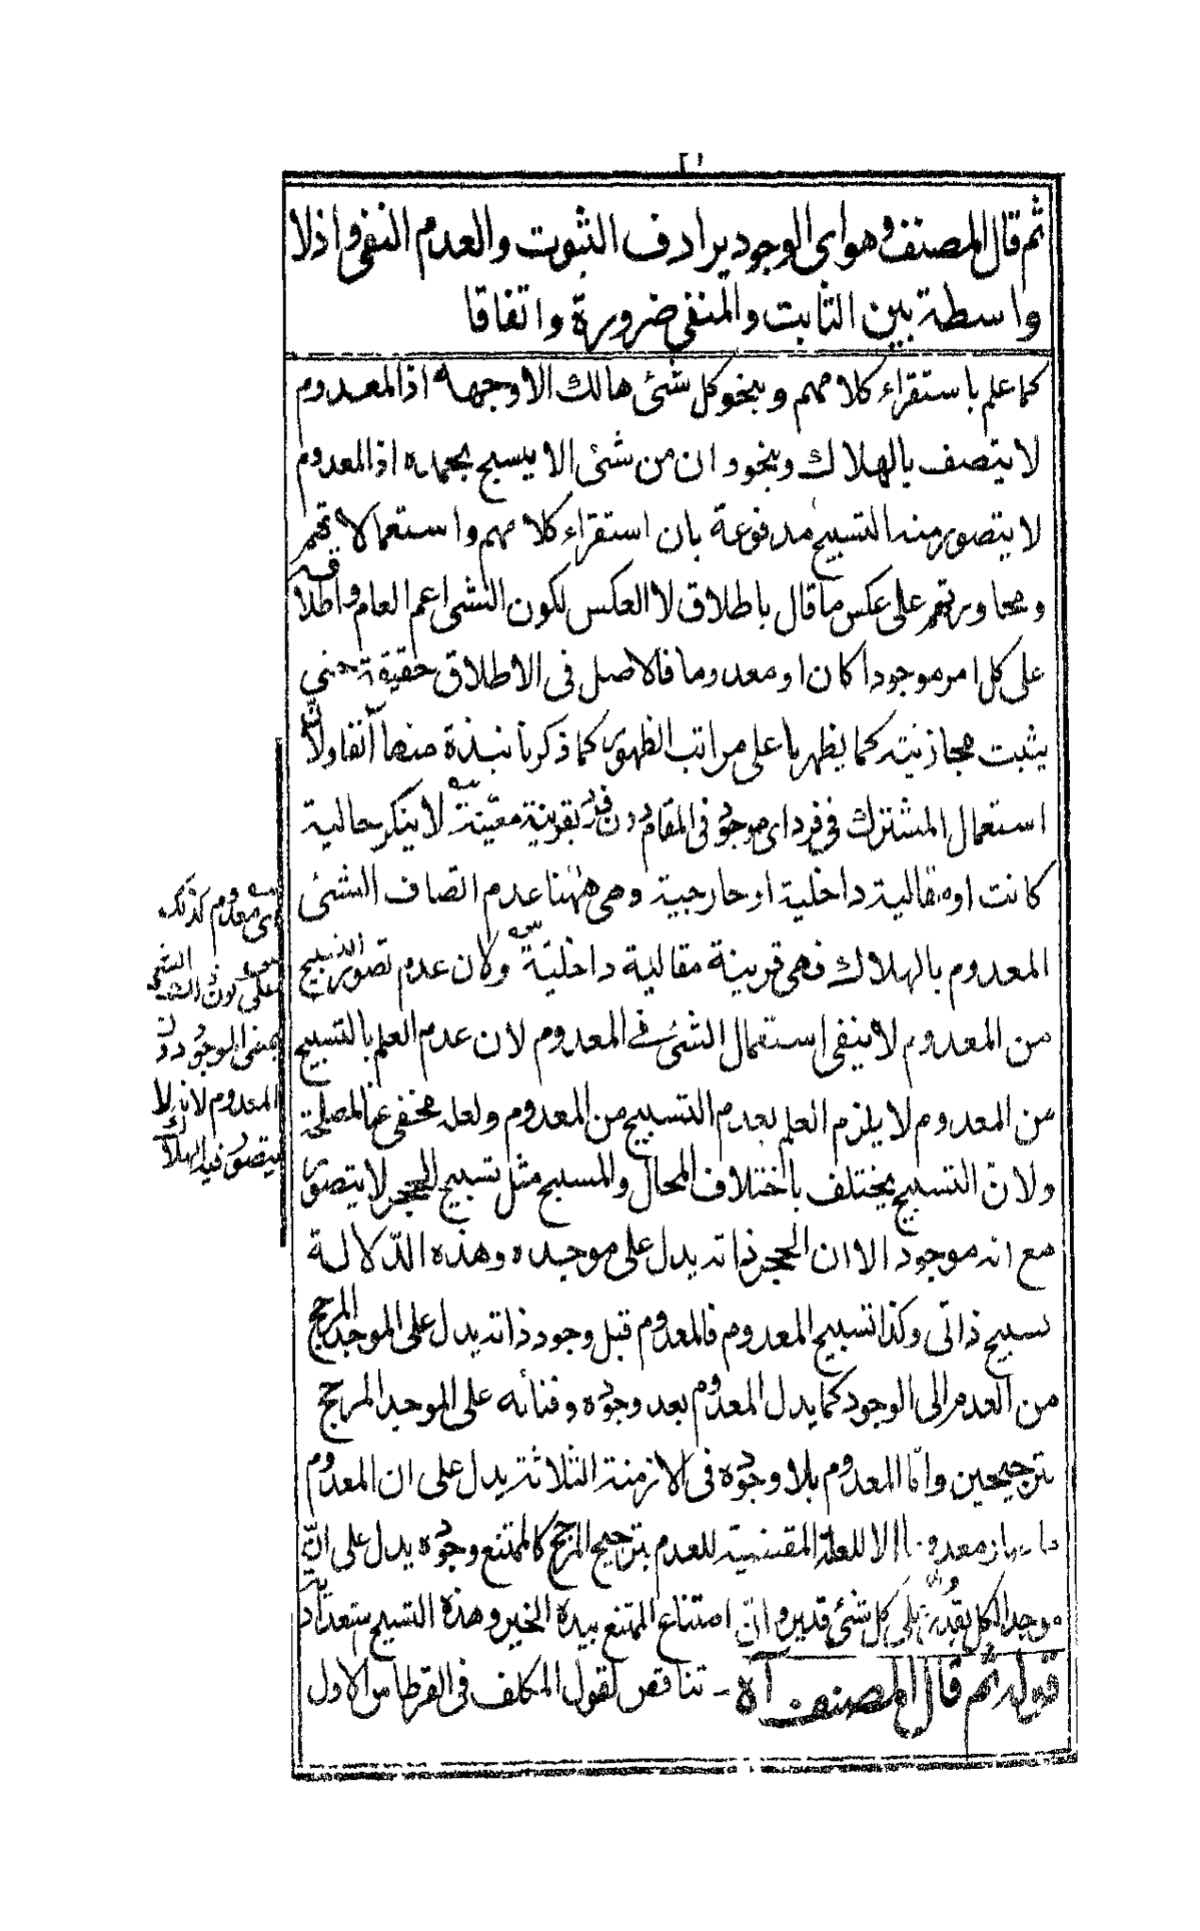 ٢١
ثم قال المصنف وهو اى الوجود يرادف الثبوت والعدم النفى واذ لا
واسطة بين الثابت والمنفى ضرورة واتفاقا
كما علم باستقراء كلامهم وبنحو كل شئ هالك الا وجهه اذ المعدوم
لا يتصف بالهلاك وبنحو وان من شئ الا يسبح بحمده اذ المعدوم
لا يتصور منه التسبيح مدفوعة بان استقراء كلامهم واستعمالاتهم
ومحاوراتهم على عكس ما قال باطلاق لا العكس لكون الشئ اعم العام واطلاقه
على كل امر موجودا كان او معدوما فالاصل فى الاطلاق حقيقة حتى
يثبت مجازيته كما يظهر با على مراتب الظهور كما ذكرنا نبذة منها آنفا ولان
استعمال المشترك فى فرد اى موجود فى المقام دون فرد بقرينة معينة لا ينكر حالية
كانت او مقالية داخلية او خارجية وهى ههنا عدم اتصاف الشئ
المعدوم بالهلاك فهى قرينة مقالية داخلية ولان عدم تصور التسبيح
من المعدوم لا ينفى استعمال الشئ فى المعدوم لان عدم العلم بالتسبيح
من المعدوم لا يلزم العلم بعدم التسبيح من المعدوم ولعله مخفى عنا لمصلحة
ولان التسبيح يختلف باختلاف المحال والمسبح مثل تسبيح الحجر لا يتصور
مع انه موجود الا ان الحجر ذاته يدل على موجده وهذه الدلالة
تسبيح ذاتى وكذا تسبيح المعدوم فالمعدوم قبل وجود ذاته يدل على الموجد المرجح
من العدم الى الوجود كما يدل المعدوم بعد وجوده وفنائه على الموجد المرجح
بترجيحين واما المعدوم بلا وجوده فى الازمنة الثلاثة يدل على ان المعدوم
ما صار معدوما الا للعلة المقتضية للعدم بترجيح المرجح كالممتنع وجوده يدل على ان
موجد الكل بقدرته على كل شئ قدير وان امتناع الممتنع بيده الخير وهذه التسبيح
قوله ثم قال المصنف آه - تناقض لقول المكلف فى القرطاس الاول
اى معدوم كذلك
فعلى كون الشئ
بمعنى الموجود دون
المعدوم لانه لا
يتصور فيه الهلاك